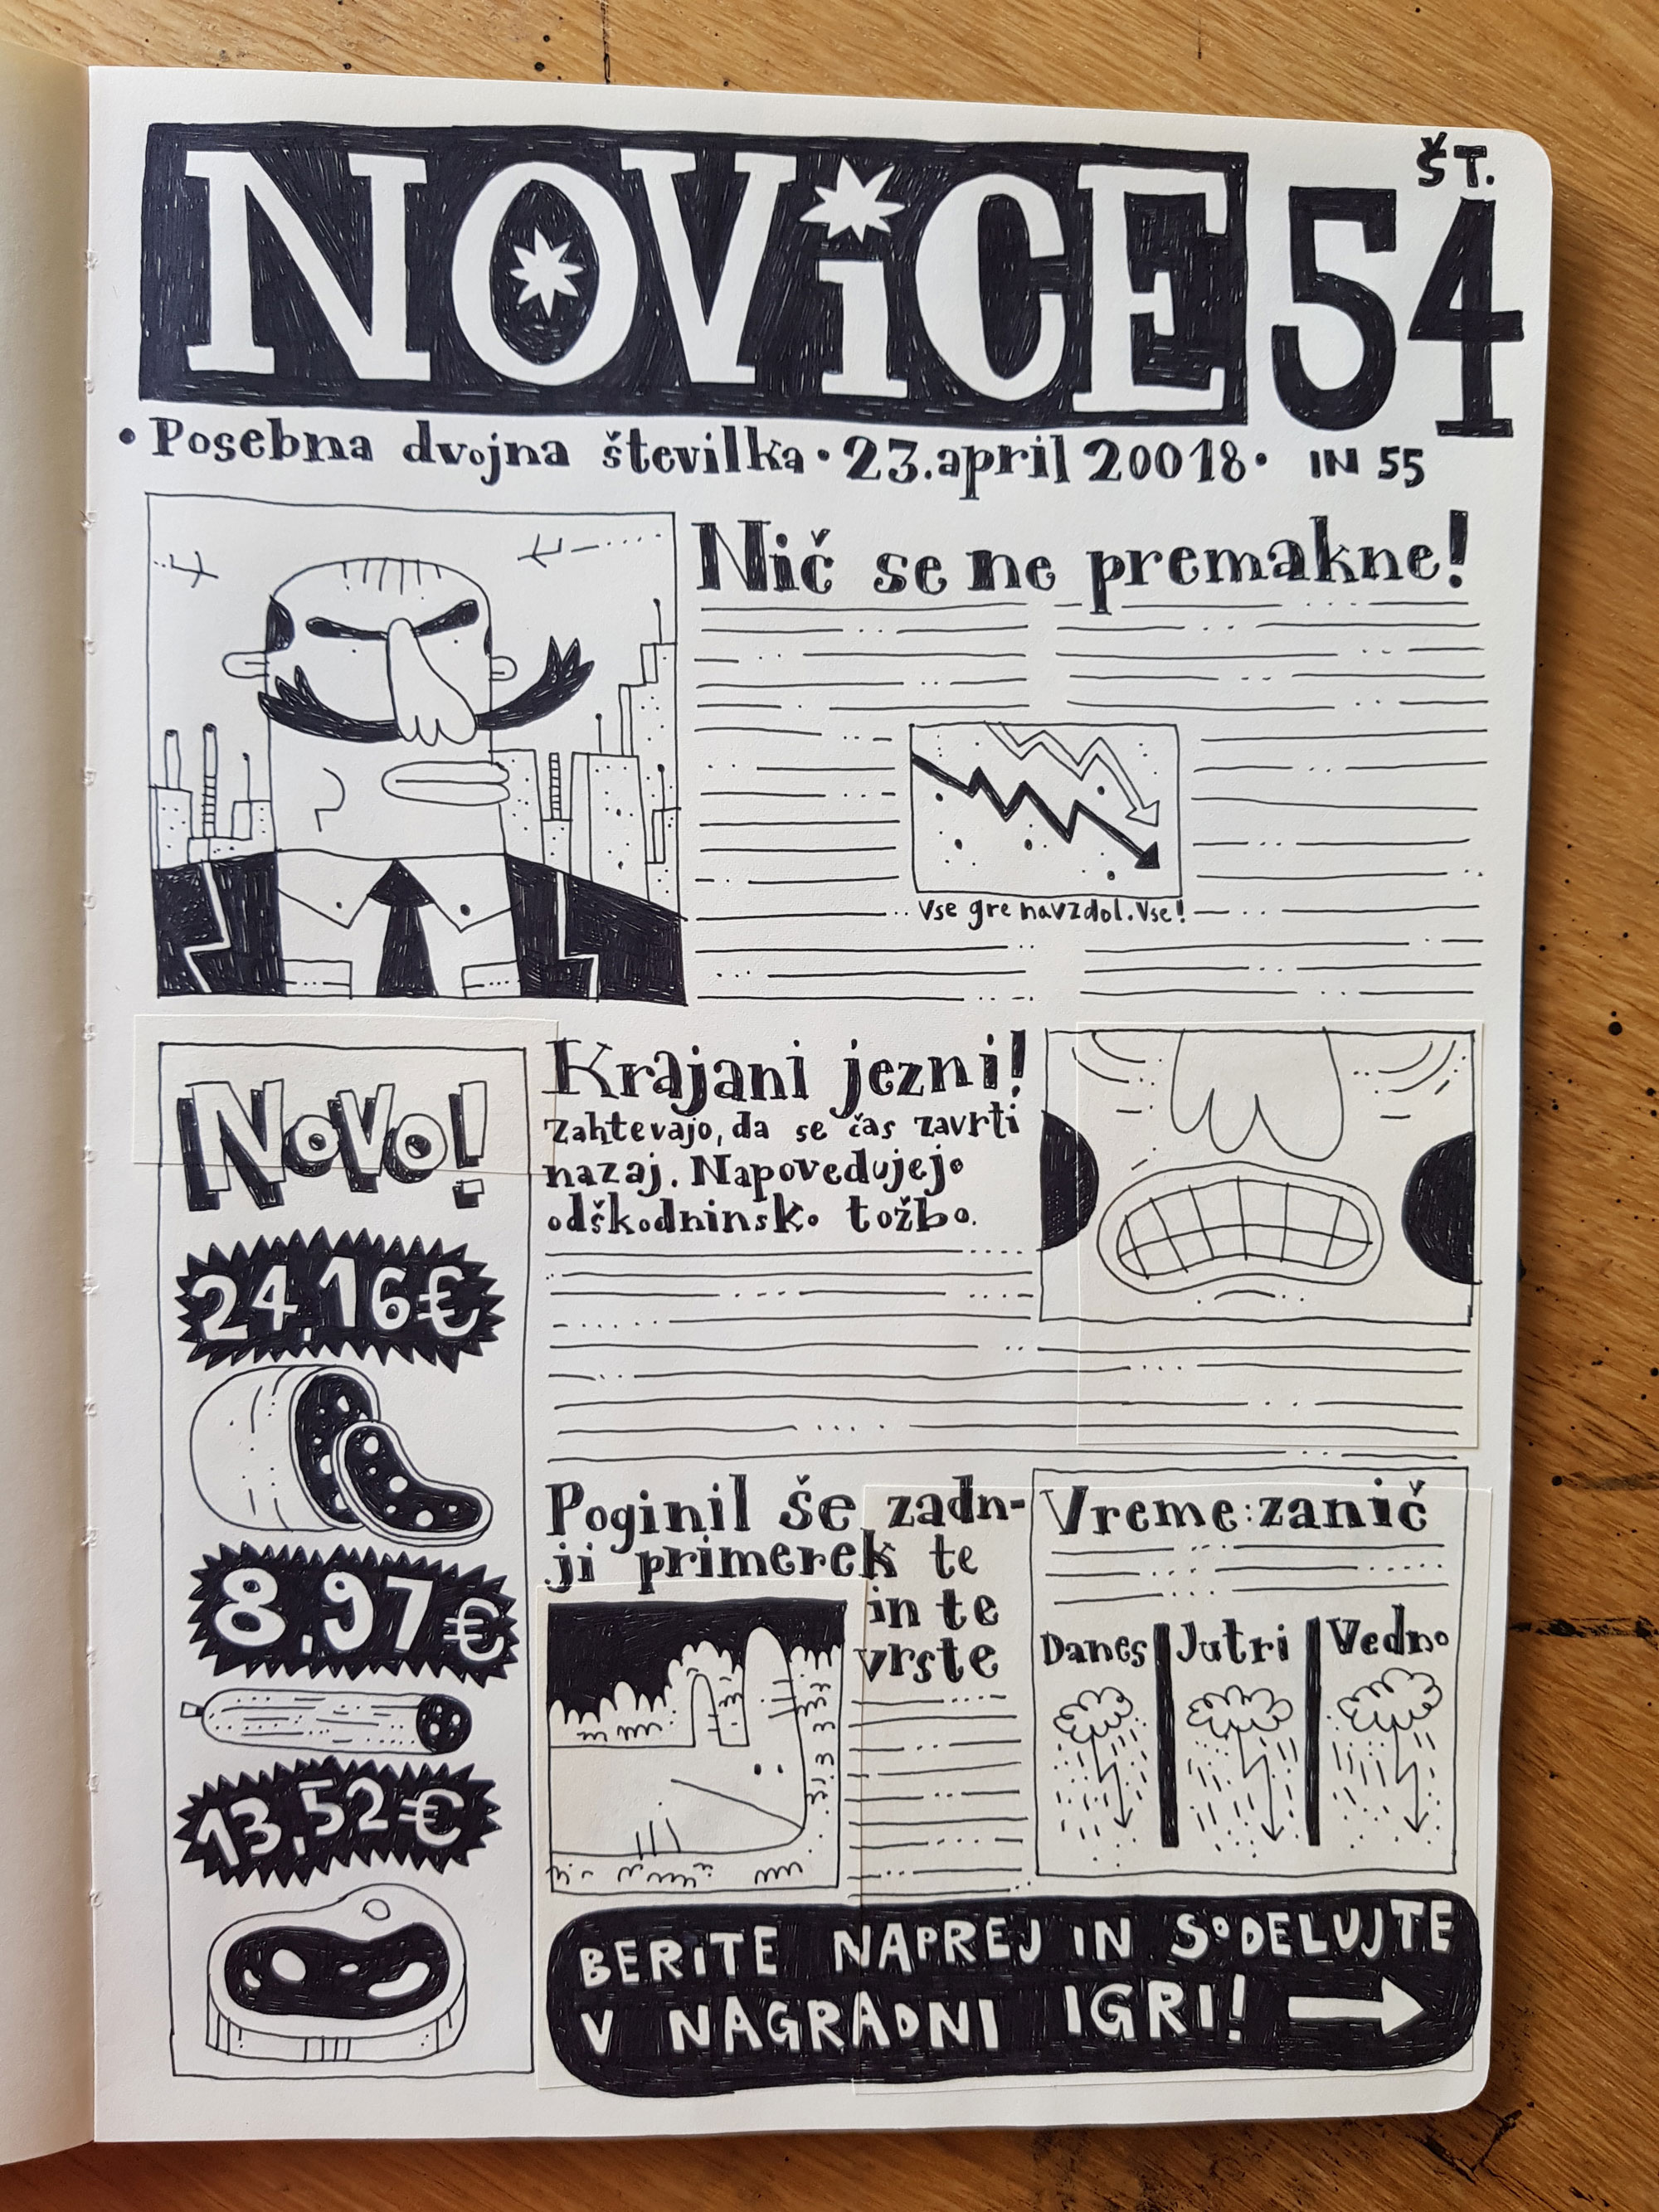 NOViCE
ŠT.
54
• Posebna dvojna številka • 23. april 20018 •
IN 55
Nič se ne premakne!
Vse gre navzdol. Vse!
NOVO!
24,16€
8,97€
13,52€
Krajani jezni!
Zahtevajo, da se čas zavrti
nazaj. Napovedujejo
odškodninsko tožbo.
Poginil še zadn-
ji primerek te
in te
vrste
Vreme: zanič
Danes
Jutri
Vedno
BERiTE NAPREJ IN SODELUJTE
V NAGRADNI IGRI!